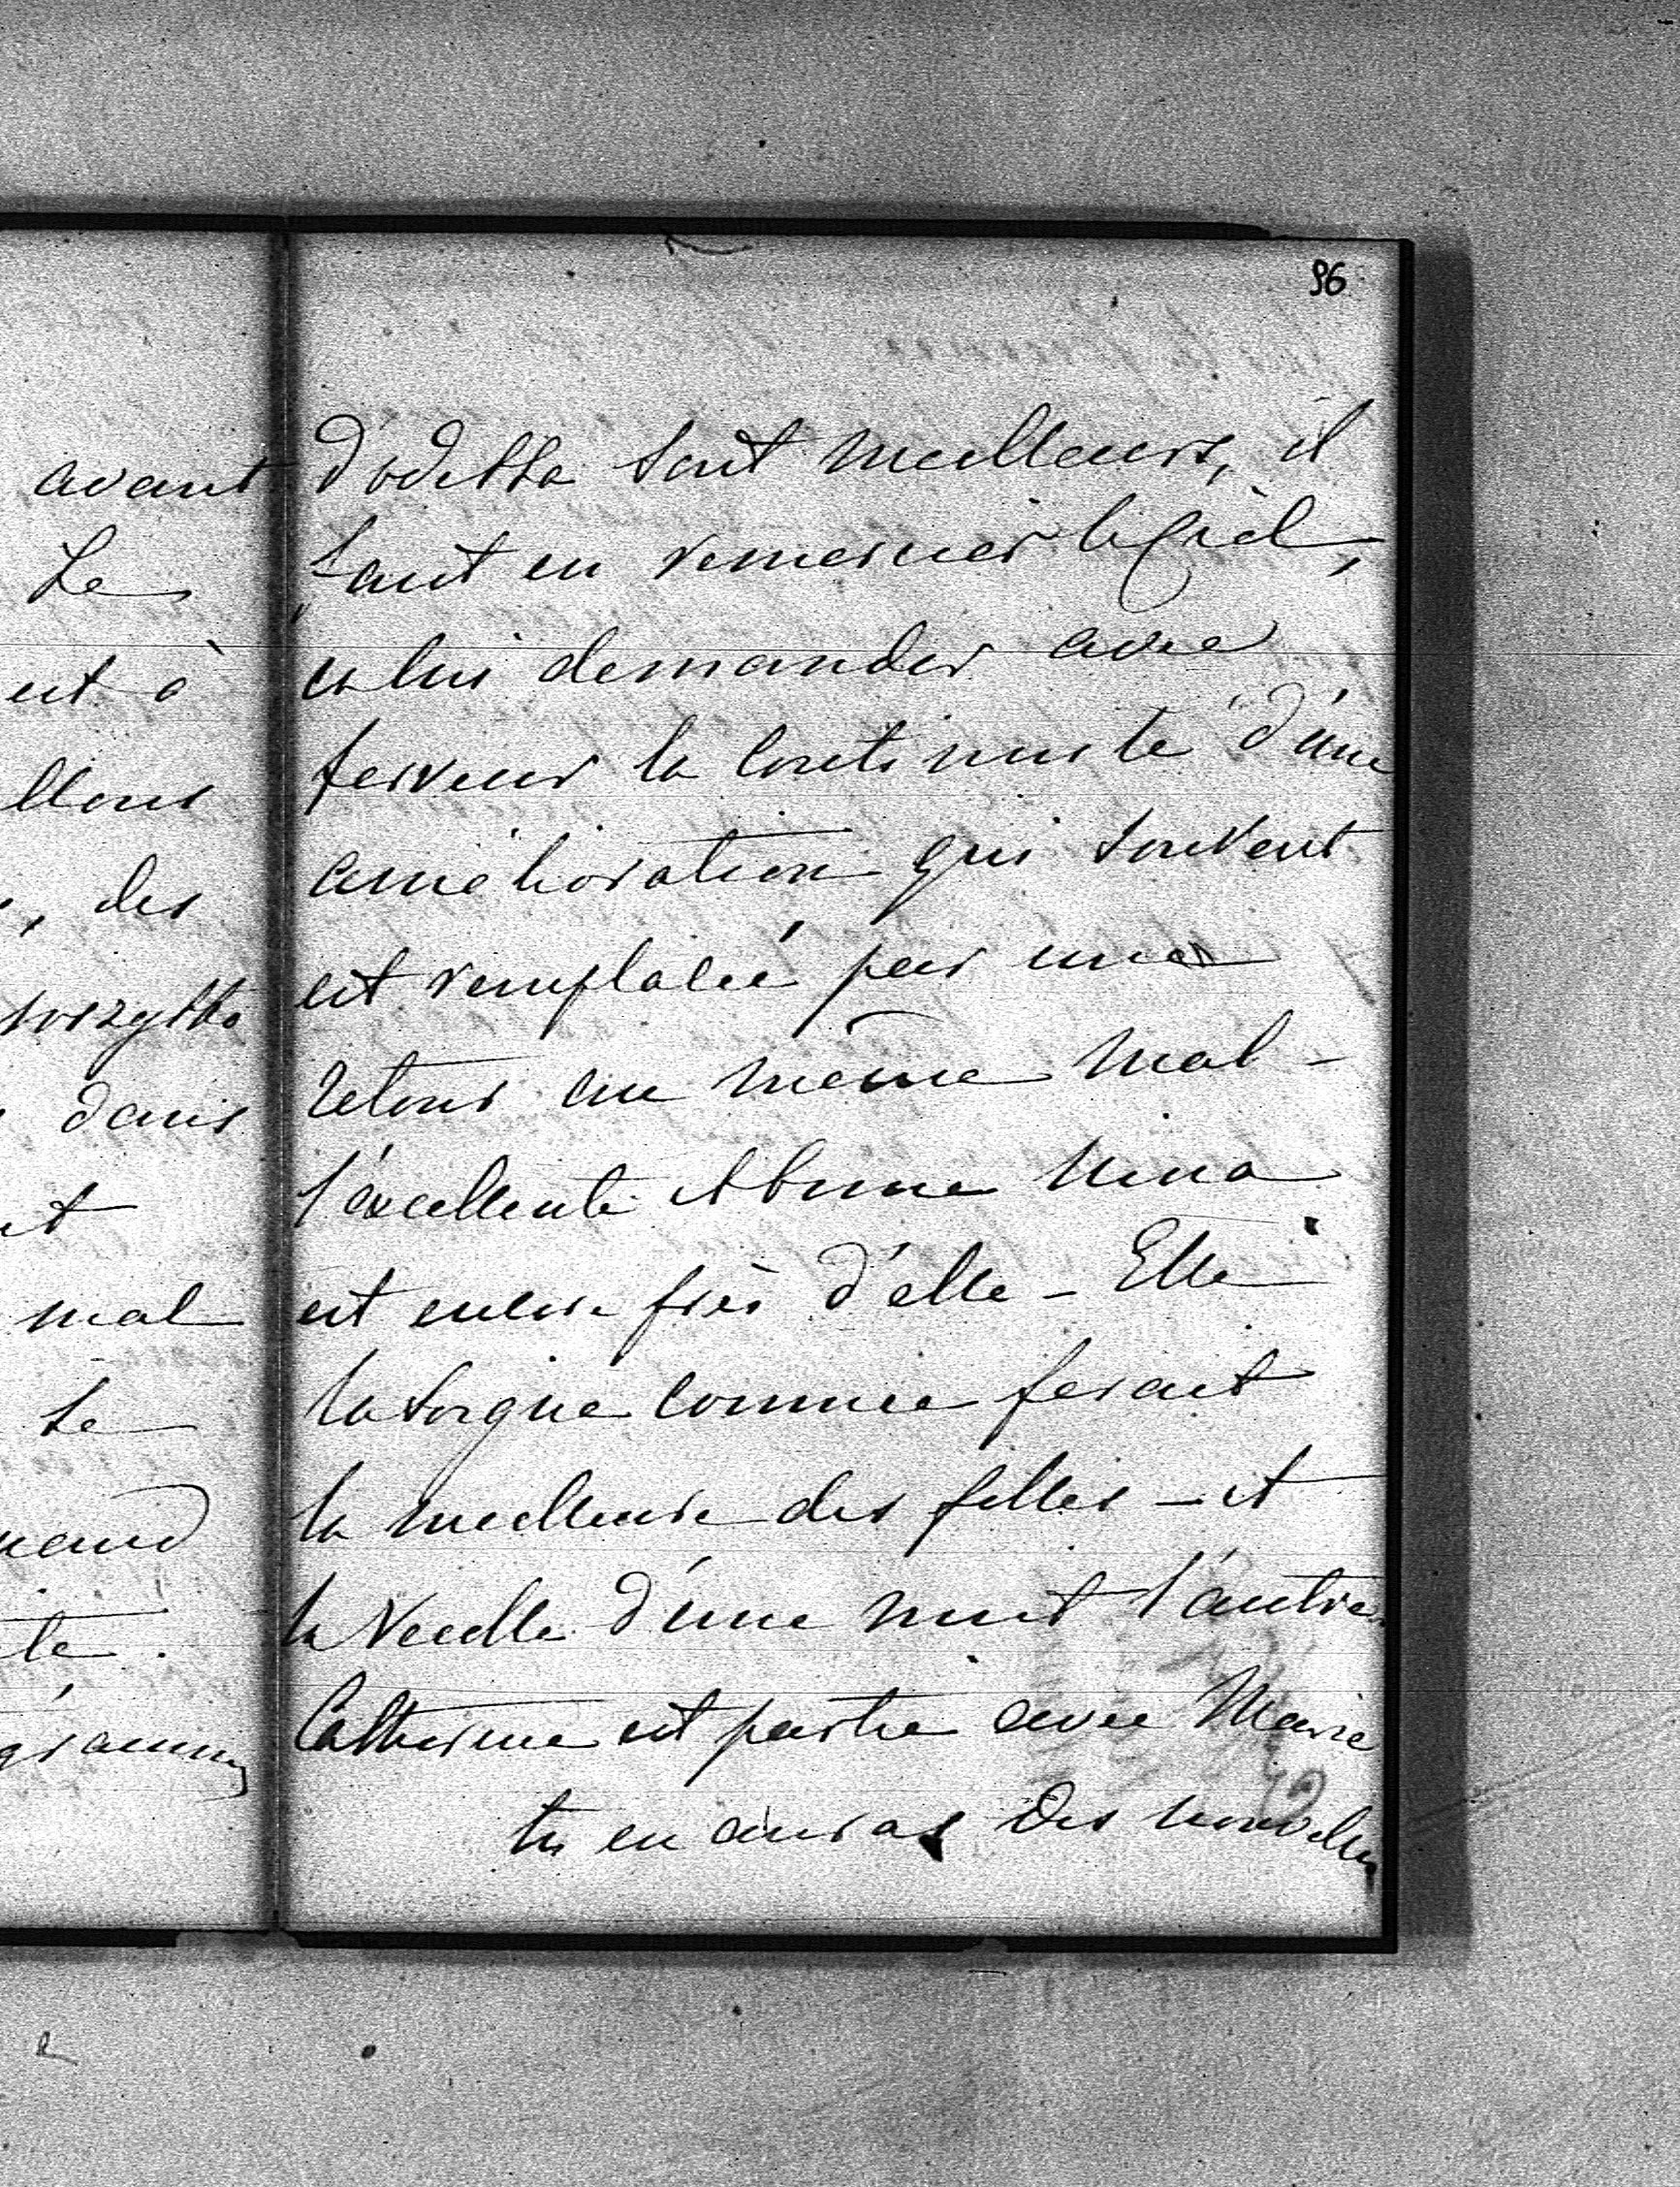 96
d'odessa sont meilleurs, il
faut en remercier le Ciel,
et lui demander avec
ferveur la continuité d'une
amélioration qui souvent
est remplaceé par une
retour au même mal -
l'excellente et bonne Nina
est encore près d'elle - Elle
la soigne comme ferait
la meilleure des filles - et
la veille d'une nuit l'autre.
Catherine est partie avec Marie
tu en auras des nouvelles
avant
Le
est à
llons
, des
dans
et
mal
se
te.